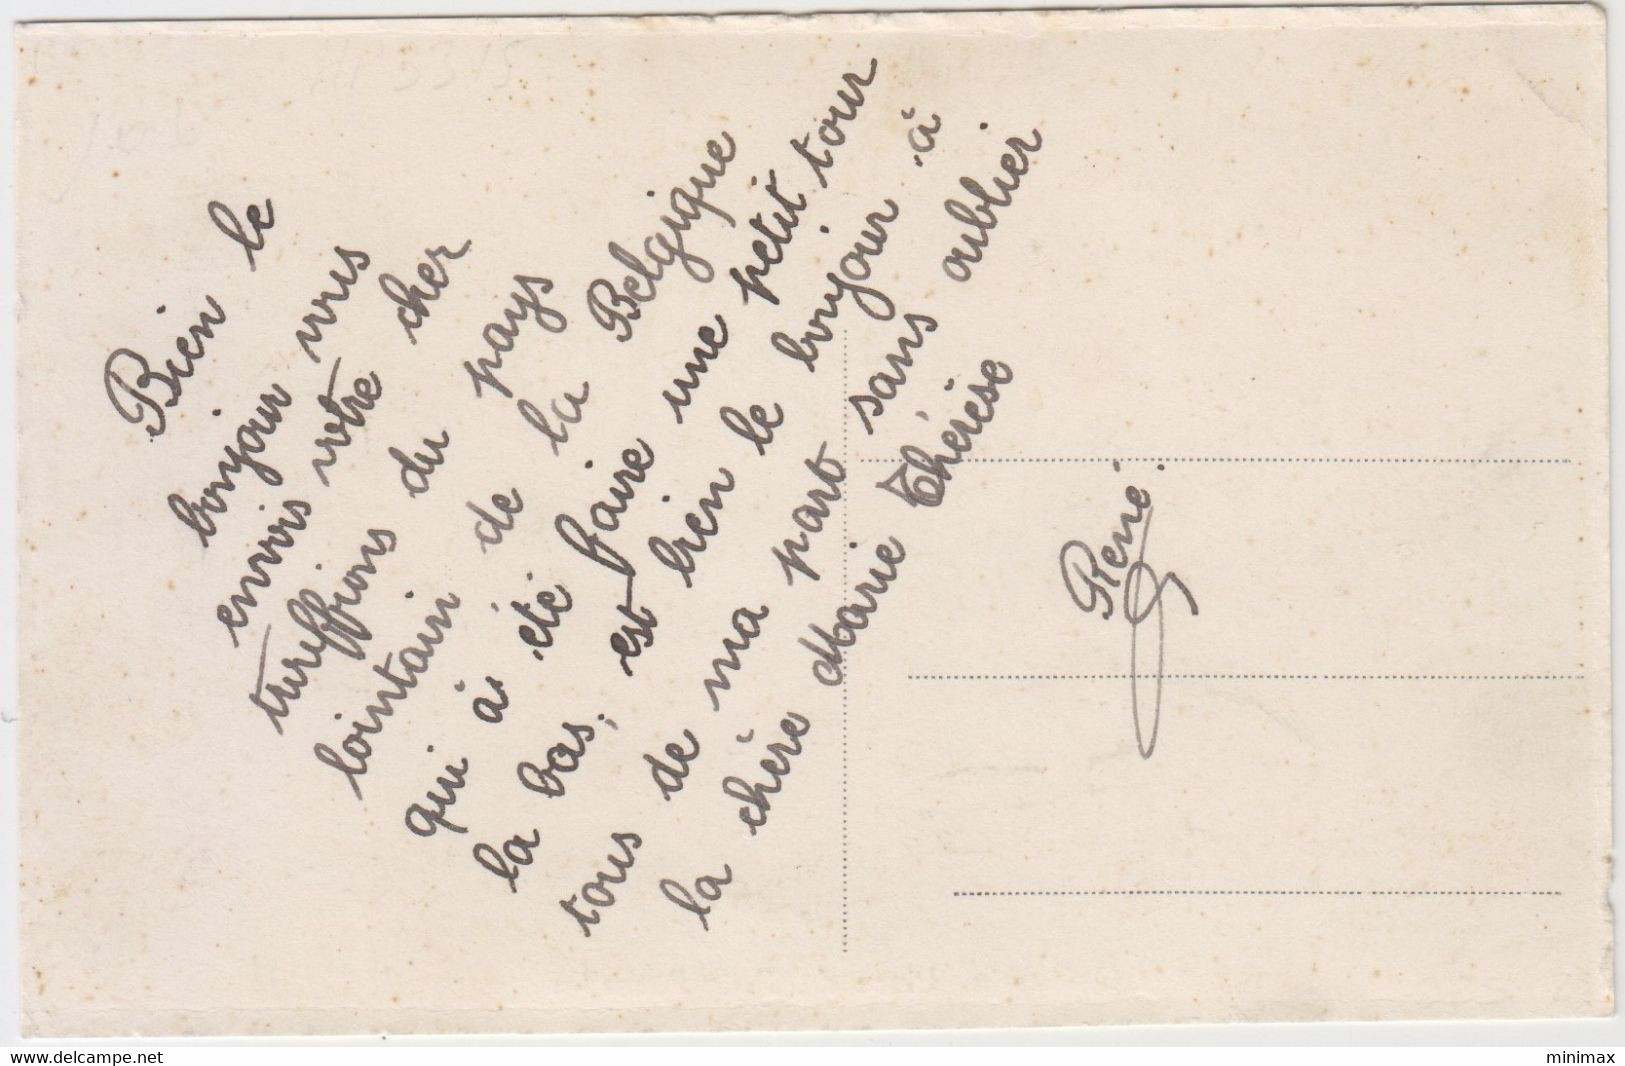 Bien le
bonjour vous
envois votre cher
tureffions du pays
lointain de la Belgique
qui à été faire une petit tour
la bas, est bien le bonjour à
tous de ma part sans oublier
la chère Marie Thérèse
René.
www.delcampe.net
minimax